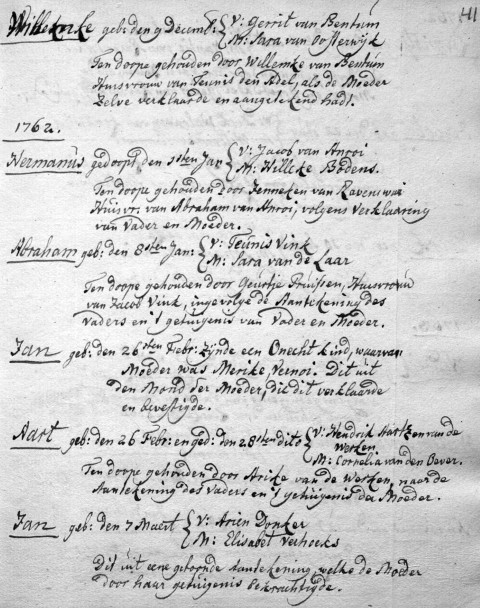 41
Willemke geb: den 9 Decemb: { V: Gerrit van Bentum
M: Sara van Oosterwijk
Ten doope gehouden door Willemke van Bentum
Huisvrouw van Teunis den Adel, als de Moeder
Zelve verklaarde en aangetekend hadt.
1762.
Hermanus gedoopt den 10ten Jan { V: Jacob van Anrooi
M: Willeke Bodens.
Ten doope gehouden door Jenneken van Ravenswai
Huisvr: van Abraham van Anrooi, volgens Verklaaring
van Vader en Moeder.
Abraham geb: den 8sten Jan: { V: Teunis Vink
M: Sara van de Laar
Ten doope gehouden door Geurtje Pruijssen, Huisvrouw
van Jacob Vink, ingevolge de Aantekening des
Vaders en 't getuigenis van Vader en Moeder.
Jan geb: den 26sten Febr: zijnde een Onecht kind, waarvan
Moeder was Merike Vernoi. Dit uit
den Mond der Moeder, die dit verklaarde
en bevestigde.
Aart geb: den 26 Febr: en ged: den 28sten dito { V: Hendrik Aartzen van de
Werken.
M: Cornelia van den Oever.
Ten doope gehouden door Arike van de Werken, naar de
Aantekening des Vaders en 't getuigenis der Moeder.
Jan geb: den 7 Maert { V: Arien Donker
M: Elisabet Verhoeks
Dit uit eene getoonde aantekening, welke de Moeder
door haar getuigenis bekrachtigde.